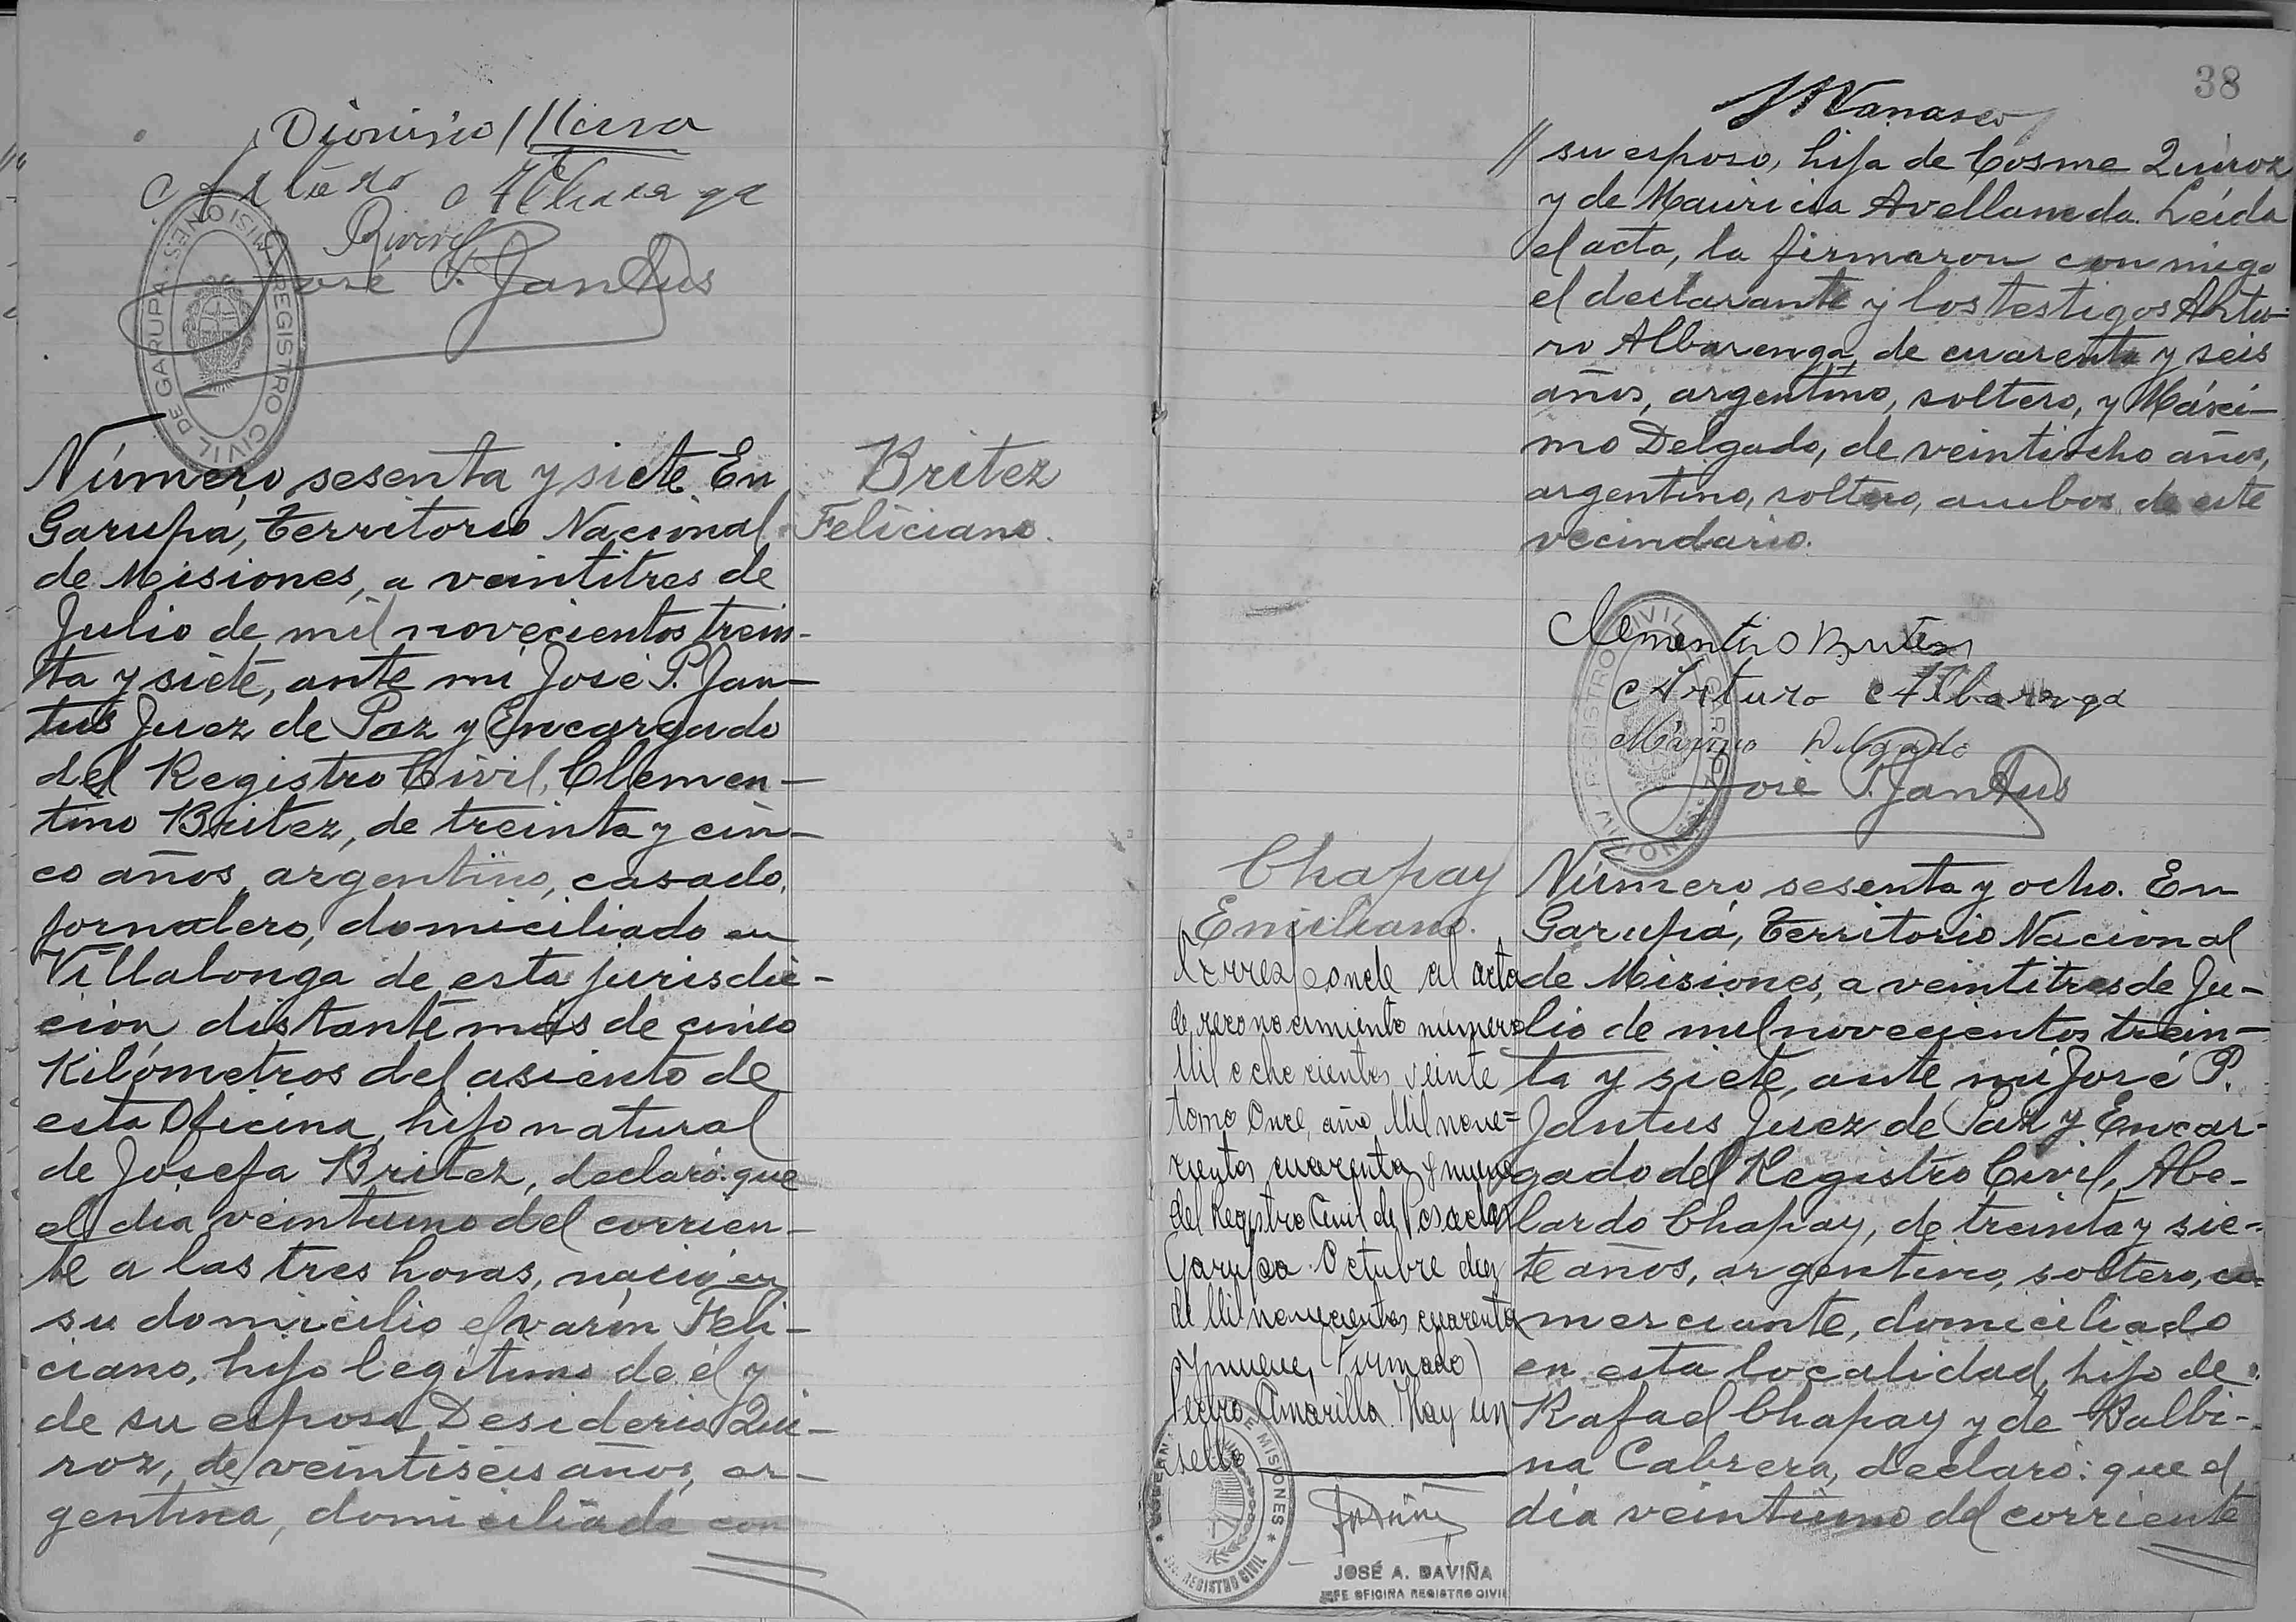 Dionisio Mesa
Arturo Albarenga
José P. Jantus
REGISTRO CIVIL DE GARUPA - MISIONES
Número sesenta y siete En
Garupá, Territorio Nacional
de Misiones, a veintitres de
Julio de mil novecientos trein-
ta y siete, ante mí José P. Jan-
tus Juez de Paz y Encargado
del Registro Civil, Clemen-
tino Britez, de treinta y cin-
co años, argentino, casado,
jornalero, domiciliado en
Villalonga de esta jurisdic-
ción, distante más de cinco
Kilómetros del asiento de
esta Oficina, hijo natural
de Josefa Britez, declaró: que
el día veintiuno del corrien-
te a las tres horas, nació en
su domicilio el varón Feli-
ciano, hijo legítimo de él y
de su esposa Desideria Qui-
roz, de veintiséis años, ar-
gentina, domiciliada con
Britez
Feliciano.
38
// su esposo, hija de Cosme Quiroz
y de Mauricia Avellaneda. Leída
el acta, la firmaron conmigo
el declarante y los testigos Artu-
ro Albarenga, de cuarenta y seis
años, argentino, soltero, y Máxi-
mo Delgado, de veintiocho años,
argentino, soltero, ambos de este
vecindario.
Clementino Britez
Arturo Albarenga
Máximo Delgado
José P. Jantus
Chapay
Emiliano.
Corresponde al acta
de reconocimiento número
Mil ochocientos veinte
tomo Once, año Mil nove=
cientos cuarenta y nueve
del Registro Civil de Posadas
Garupa. Octubre diez
de Mil novecientos cuarenta
y nueve, (Firmado)
Pedro Amarilla. Hay un
sello
DE MISIONES
REGISTRO CIVIL
JOSÉ A. DAVIÑA
JEFE OFICINA REGISTRO CIVIL
Número sesenta y ocho. En
Garupá, Territorio Nacional
de Misiones, a veintitres de Ju-
lio de mil novecientos trein-
ta y siete, ante mí José P.
Jantus Juez de Paz y Encar-
gado del Registro Civil, Abe-
lardo Chapay, de treinta y sie-
te años, argentino, soltero, co=
merciante, domiciliado
en esta localidad, hijo de
Rafael Chapay y de Balbi-
na Cabrera, declaró: que el
día veintiuno del corriente